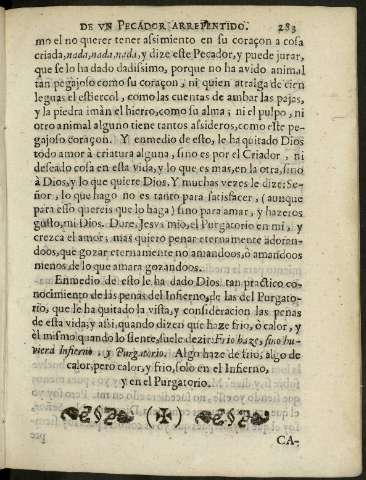 DE VN PECADOR ARREPENTIDO. 283
mo el no querer tener assimiento en su coraçon a cosa
criada, nada, nada, nada, y dize este Pecador, y puede jurar,
que se lo ha dado dadissimo, porque no ha avido animal
tan pegajoso como su coraçon, ni quien atraiga de cien
leguas el estiercol, como las cuentas de ambar las pajas,
y la piedra imàn el hierro, como su alma; ni el pulpo, ni
otro animal alguno tiene tantos assideros, como este pe-
gajoso coraçon. Y enmedio de esto, le ha quitado Dios
todo amor à criatura alguna, sino es por el Criador, ni
deseado cosa en esta vida, y lo que es mas, en la otra, sino
à Dios, y lo que quiere Dios. Y muchas vezes le dize: Se-
ñor, lo que hago no es tanto para satisfacer, (aunque
para esso quereis que lo haga) sino para amar, y hazeros
gusto, mi Dios. Dure, Jesvs mio, el Purgatorio en mi, y
crezca el amor; mas quiero penar eternamente adoran-
doos, que gozar eternamente no amandoos, ò amandoos
menos de lo que amara gozandoos.
Enmedio de esto le ha dado Dios tan practico co-
nocimiento de las penas del Infierno, de las del Purgato-
rio, que le ha quitado la vista, y consideracion las penas
de esta vida; y assi, quando dizen que haze frio, ò calor, y
èl mismo quando lo siente, suele dezir: Frio haze, sino hu-
viera Infierno, y Purgatorio. Algo haze de frio, algo de
calor, pero calor, y frio, solo en el Infierno,
y en el Purgatorio.
(✠)
CA-